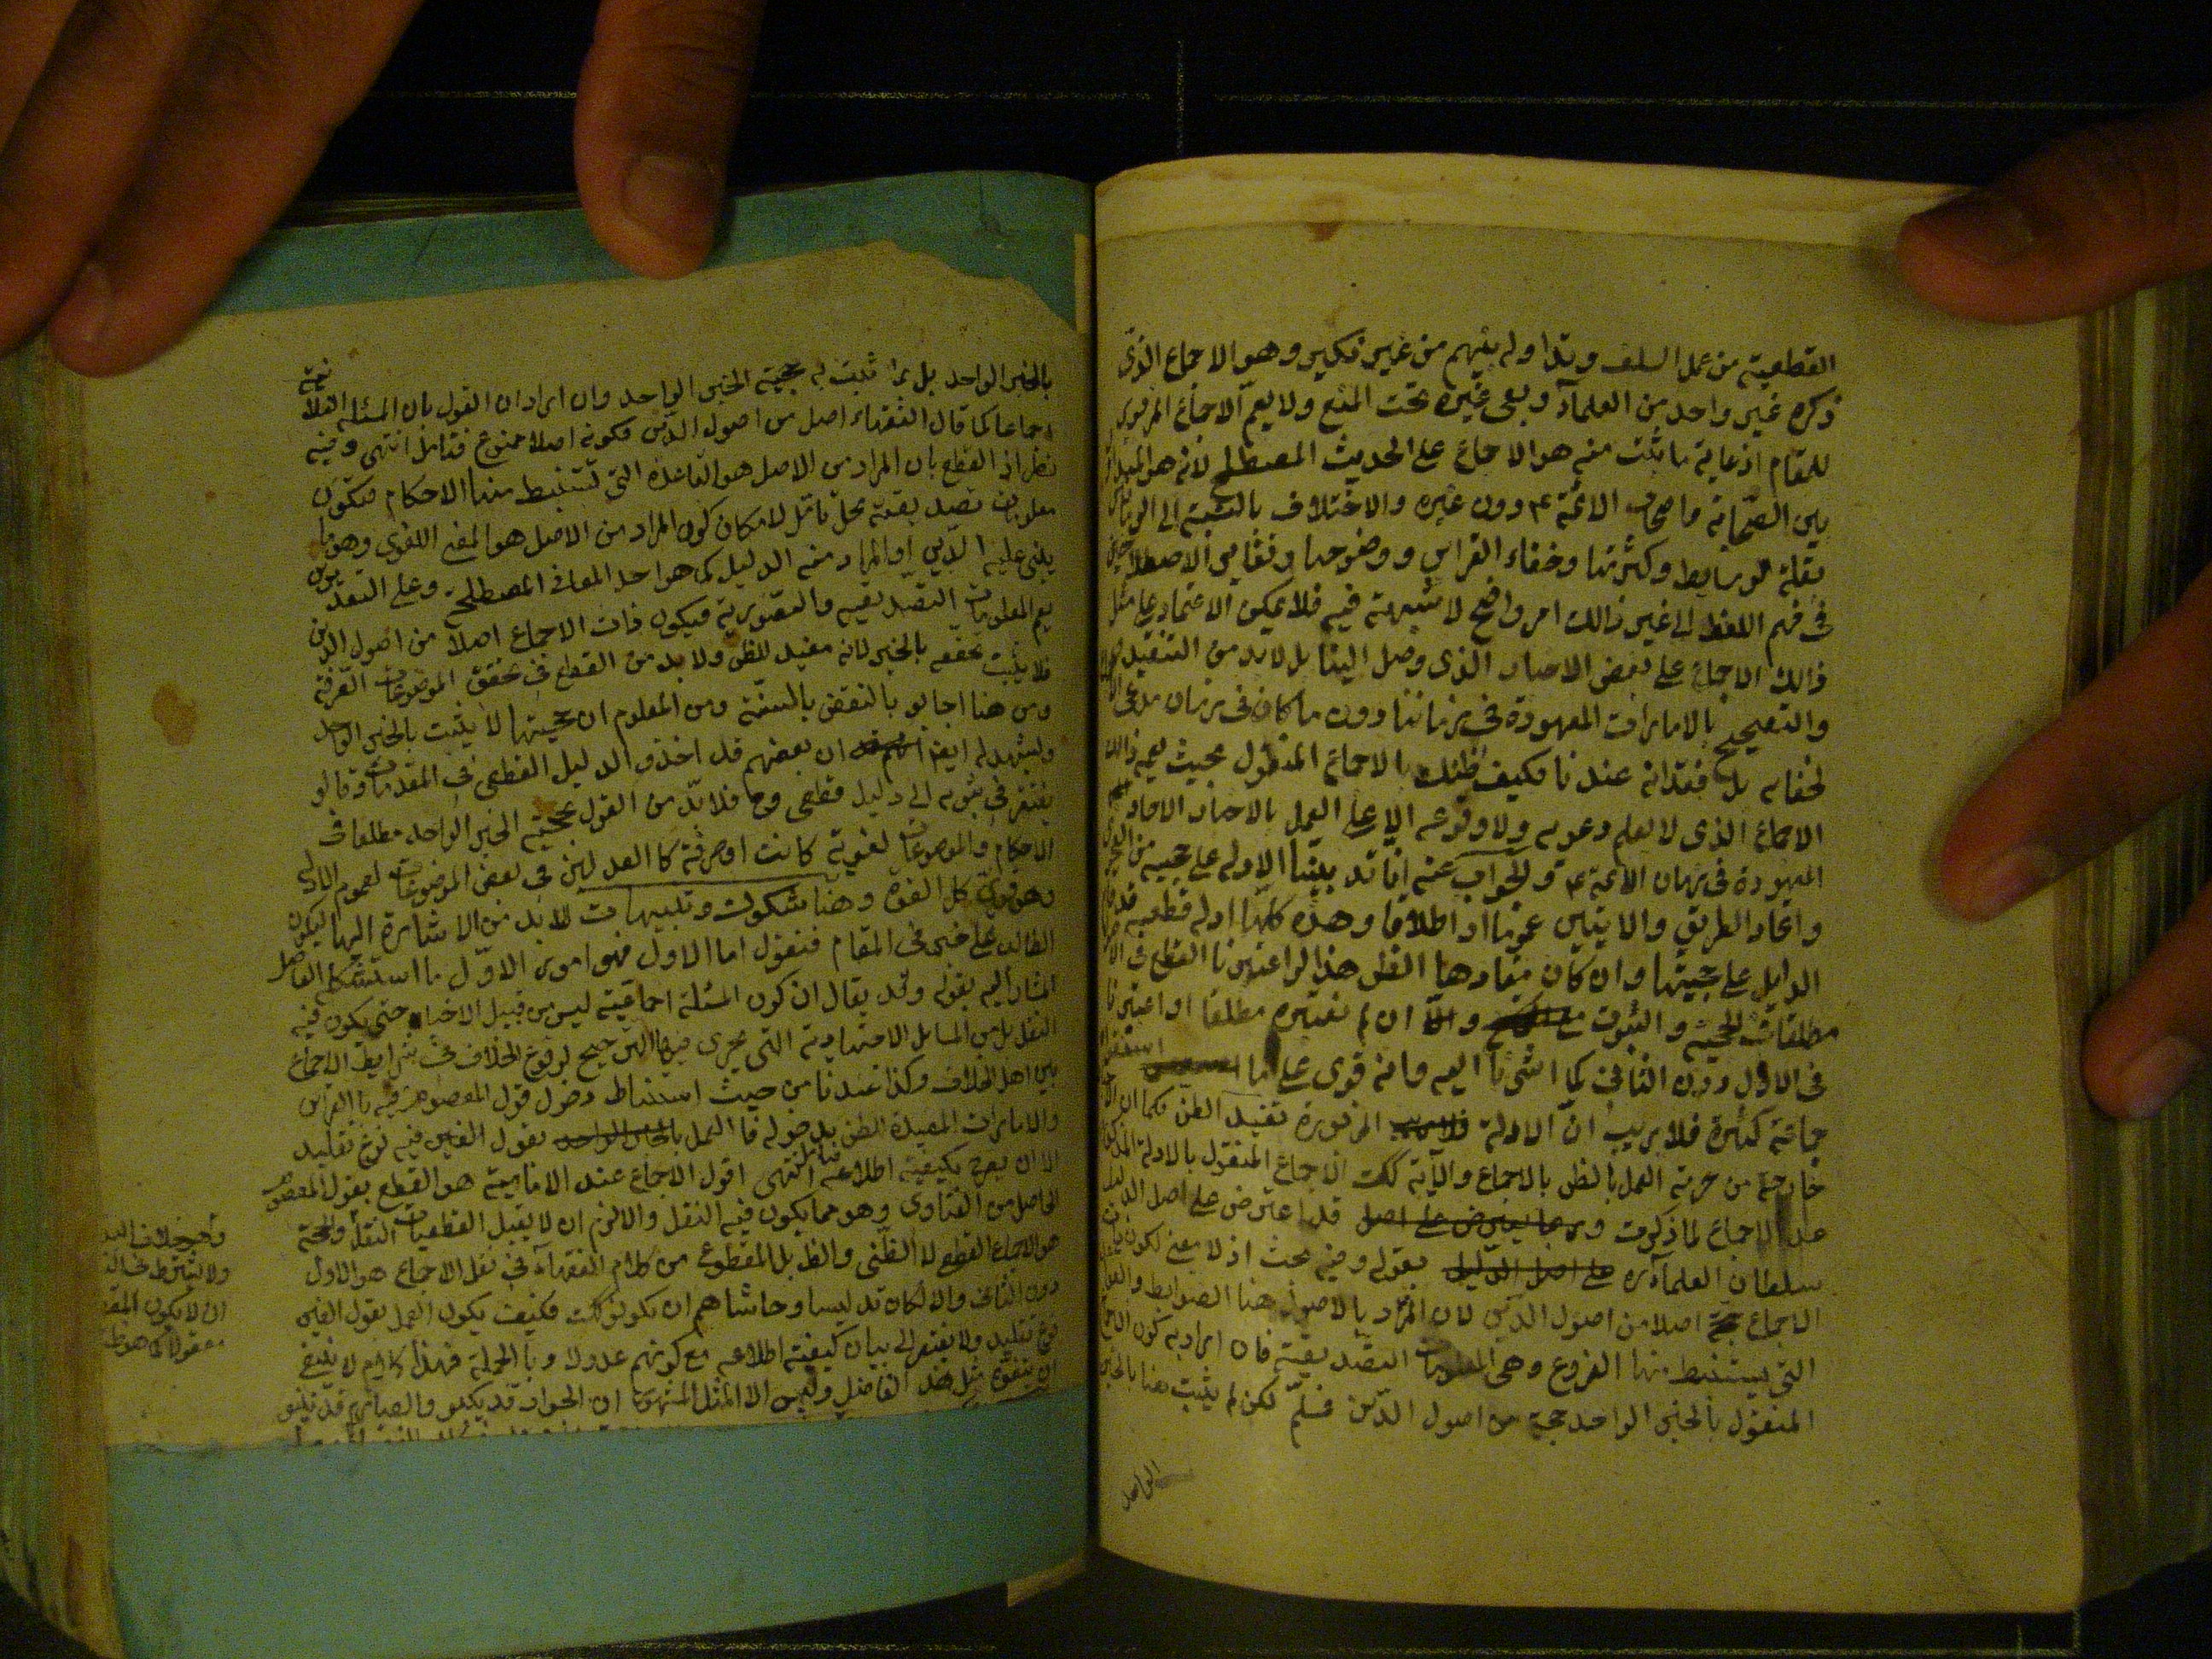 القطعية من عمل السلف وتداوله بينهم من غير نكير وهو الاجماع الذى
ذكره غير واحد من العلماء وبقى غيره تحت المنع ولا يعم الاجماع المزبور
للمقام اذ غاية ما يثبت منه هو الاجماع على الحديث المصطلح لانه هو
بين الصحابة واصحاب الائمة ع دون غيره والاختلاف بالنسبة الى
بقلة الوسايط وكثرتها وخفاء القراين ووضوحها وتغاير الاصطلاحين
فى فهم اللفظ الى غير ذالك امر واضح لا شبهة فيه فلا يمكن الاعتماد على مثل
ذالك الاجماع على بعض الاخبار الذى وصل الينا بل لا بد من التنقيد
والتصحيح بالامارات المعهودة فى زماننا دون ما كان فى زمان مدعى
لخفائه بل فقدانه عندنا فكيف ظنك بالاجماع المنقول بحيث يعم ذالك
الاجماع الذى لا يعلم دعويه ولا وقوعه الا على العمل بالاخبار الاحاد
المعهودة فى زمان الائمة ع والجواب عنه انا قد بينا الادلة على حجيته من
واتحاد الطريق والايتين عموما او اطلاقا وهذه كلها ادلة قطعية قد
الدليل على حجيتها وان كان مفادها الظن هذا لو اعتبرنا القطع فى
مطلقات الحجية والثبوت والا ان لم نعتبره مطلقا او اعتبرنا
فى الاول دون الثانى كما اشرنا اليه وانه قوى على ما
جماعة كثيرة فلا ريب ان الادلة المزبورة تفيد الظن فكما ان
خارجة من حرمة العمل بالظن بالاجماع والآية كك الاجماع المنقول بالادلة
هذا الاجماع لما ذكرت وربما يعترض على اصل قد اعترض على اصل الدليل
سلطان العلماء ره على اصل الدليل بقوله وفيه بحث اذ لا معنى لكون
الاجماع حجة اصلا من اصول الدين لان المراد بالاصول هنا الضوابط
التى يستنبط منها الفروع وهى المعلومات التصديقية فان اراد به كون
المنقول بالخبر الواحد حجة من اصول الدين فمسلم لكن لم يثبت هنا بالخبر
الواحد
بالخبر الواحد بل بما ثبت به حجية الخبر الواحد وان اراد ان القول بان المسئلة الفلانية
اجماعا كما قال الفقهاء اصل من اصول الدين فكونه اصلا ممنوع فتامل انتهى وفيه
نظر اذ القطع بان المراد من الاصل هو القاعدة التى تستنبط منها الاحكام فيكون
معلومات تصديقية محل تامل لامكان كون المراد من الاصل هو المعنى اللغوى وهو ما
يبنى عليه الدين او المراد منه الدليل كما هو احد المعانى المصطلحة وعلى التقديرين
يعم المعلومات التصديقية والتصورية فيكون ذات الاجماع اصلا من اصول الدين
فلا يثبت تحققه بالخبر لانه مفيد للظن ولا بد من القطع فى تحقق الموضوعات الصرفة
ومن هنا اجابو بالنقض بالسنة ومن المعلوم ان حجيتها لا يثبت بالخبر الواحد
ويشهد له ايضا ان بعضهم قد اخذ الدليل القطعى فى المقدمات وقالو
يفتقر فى ثبوته الى دليل قطعى وح فلا بد من القول بحجية الخبر الواحد مطلقا فى
الاحكام والموضوعات لغوية كانت او صرفة كالعدلين فى بعض الموضوعات لعموم الادلة
وهو قوى كل القوة وهنا شكوك وتنبيهات لا بد من الاشارة اليها ليكون
الطالب على خبر فى المقام فنقول اما الاول فهو امور الاول ما استشكل الفاضل
المشار اليه بقوله وقد يقال ان كون المسئلة اجماعية ليس من قبيل الاخبار حتى يكون فيه
النقل بل من المسايل الاجتهادية التى يجرى فيها الترجيح لوقوع الخلاف فى شرايط الاجماع
بين اهل الخلاف وكذا عندنا من حيث استنباط دخول قول المعصوم فيه بالقراين
والامارات المفيدة الظن بدخوله فالعمل بالخبر الواحد بقول الغير فيه نوع تقليد
الا ان يصرح بكيفية اطلاعه فتامل انتهى اقول الاجماع عند الامامية هو القطع بقول المعصوم
الحاصل من الفتاوى وهو مما يكون فيه النقل والا لزم ان لا يقبل القطعيات النقل والحجة
هو الاجماع القطع لا الظنى والظ بل المقطوع من كلام الفقهاء فى نقل الاجماع هو الاول
دون الثانى والا لكان تدليسا وحاشاهم ان يكونو كك فكيف يكون العمل بقول الغير
نوع تقليد ولا يفتقر الى بيان كيفية اطلاعه مع كونهم عدولا وبالجملة فهذا كلام لا ينبغى
ان يتفوه مثل هذ الفاضل وليس الا المثل المشهور ان الجواد قد يكبو والصارم قد ينبو
ولا يشترط فى
ان لا يكون